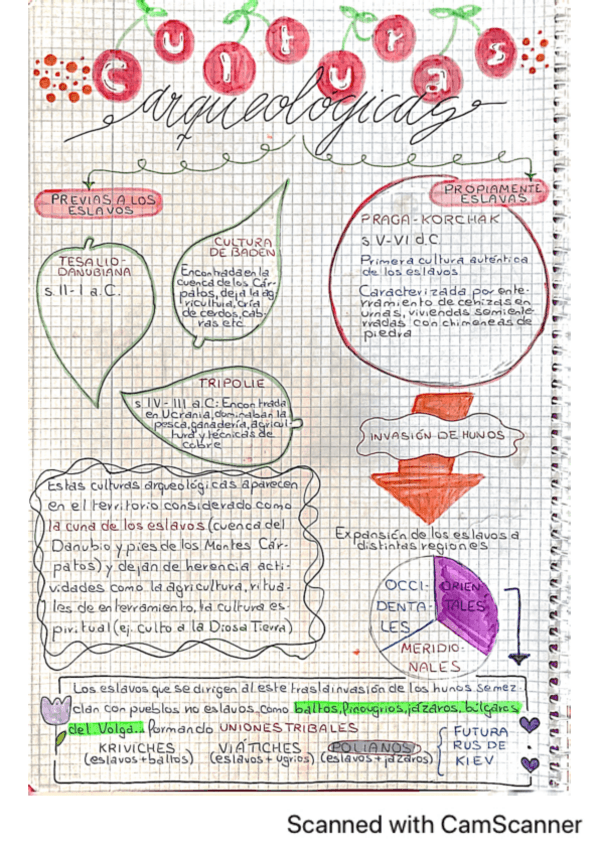 Culturas
arqueológicas
PREVIAS A LOS
ESLAVOS
TESALIO-
DANUBIANA
s. II - I a.C.
CULTURA
DE BADEN
Encontrada en la
cuenca de los Cár-
patos, deja la ag
ricultura, cría
de cerdos, cab-
ras etc
TRIPOLIE
s. IV - III a.C: Encontrada
en Ucrania, dominaban la
pesca, ganadería, agricul-
tura y técnicas de
cobre
Estas culturas arqueológicas aparecen
en el territorio considerado como
la cuna de los eslavos (cuenca del
Danubio y pies de los Montes Cár-
patos) y dejan de herencia acti-
vidades como la agricultura, ritua-
les de enterramiento, la cultura es-
piritual (ej. Culto a la Diosa Tierra)
PROPIAMENTE
ESLAVAS
PRAGA-KORCHAK
s V-VI d.C
Primera cultura auténtica
de los eslavos
Caracterizada por ente-
rramiento de cenizas en
urnas, viviendas semiente-
rradas con chimeneas de
piedra
INVASIÓN DE HUNOS
Expansión de los eslavos a
distintas regiones
OCCI-
DENTA-
LES
ORIEN
TALES
MERIDIO-
NALES
Los eslavos que se dirigen al este tras la invasión de los hunos se mez
clan con pueblos no eslavos como baltos, finougrios, jázaros, búlgaros
del Volga... formando UNIONES TRIBALES
KRIVICHES
(eslavos + baltos)
VIATICHES
(eslavos + ugrios)
POLIANOS
(eslavos + jázaros)
FUTURA
RUS DE
KIEV
Scanned with CamScanner